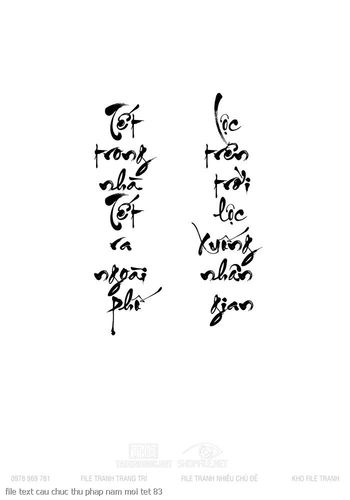 Tết
trong
nhà
Tết
ra
ngoài
phố
Lộc
trên
trời
lộc
xuống
nhân
gian
SHOPFILE.NET
0978 989 781 FILE TRANH TRANG TRÍ FILE TRANH NHIỀU CHỦ ĐỀ KHO FILE TRANH
file text cau chuc thu phap nam moi tet 83